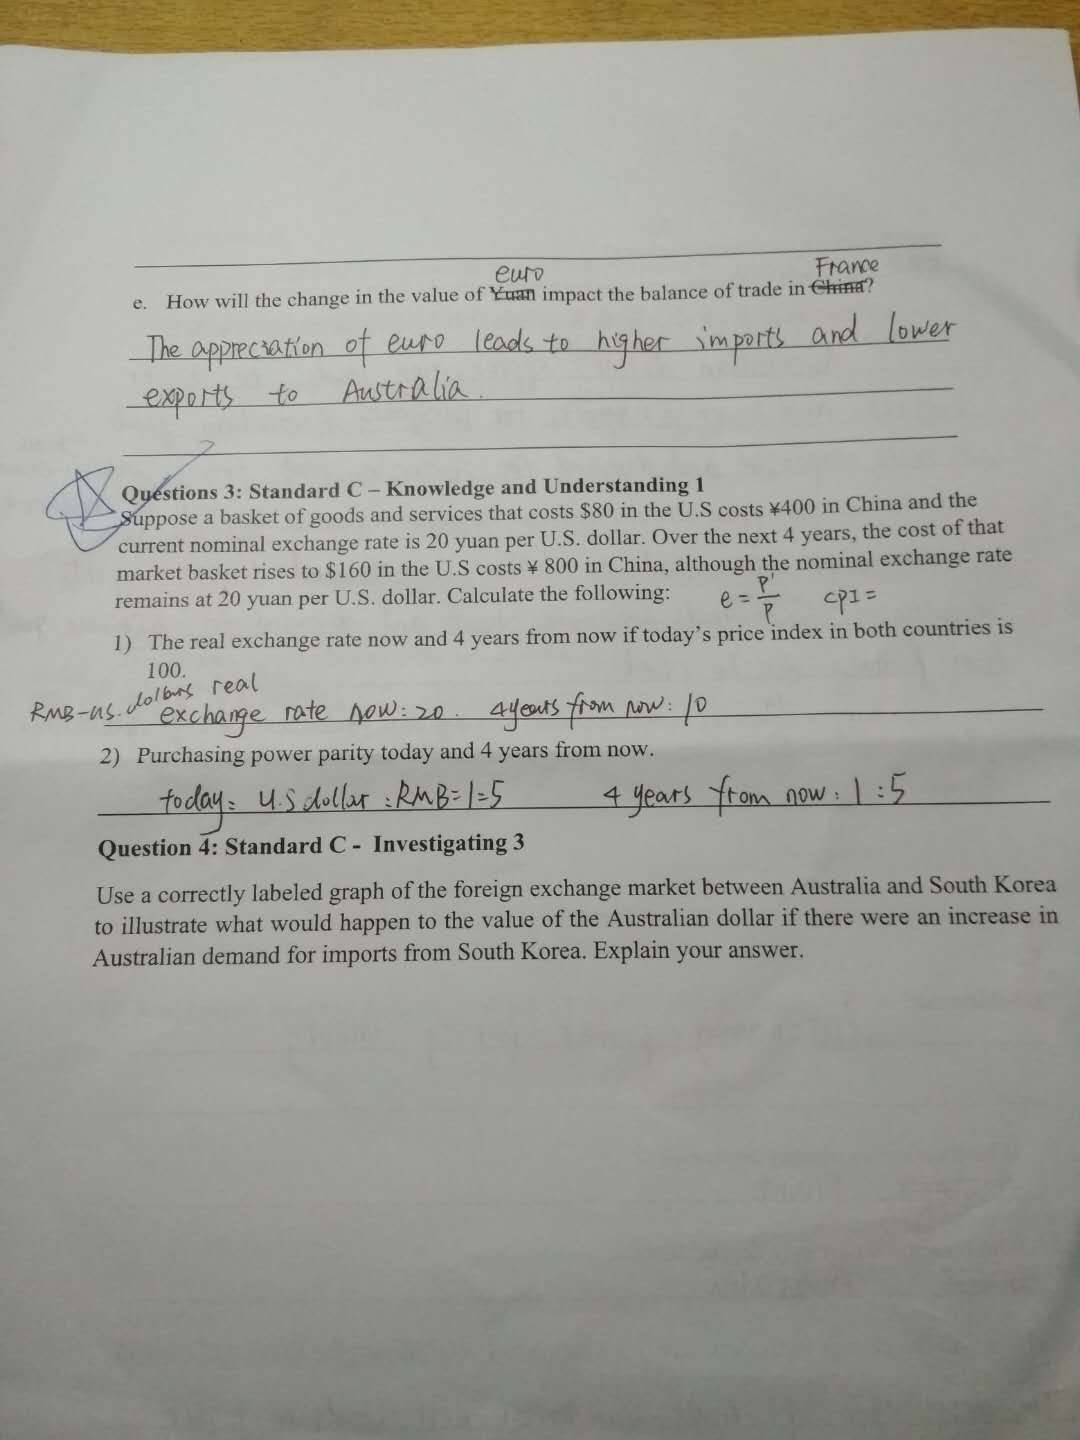 euro France
e. How will the change in the value of Yuan impact the balance of trade in China?
The appreciation of euro leads to higher imports and lower
exports to Australia.
Questions 3: Standard C – Knowledge and Understanding 1
Suppose a basket of goods and services that costs $80 in the U.S costs ¥400 in China and the
current nominal exchange rate is 20 yuan per U.S. dollar. Over the next 4 years, the cost of that
market basket rises to $160 in the U.S costs ¥ 800 in China, although the nominal exchange rate
remains at 20 yuan per U.S. dollar. Calculate the following: e = P'/P CPI =
1) The real exchange rate now and 4 years from now if today's price index in both countries is
100.
RMB-us. dollars real
exchange rate now: 20. 4 years from now: 10
2) Purchasing power parity today and 4 years from now.
today: U.S dollar : RMB = 1 = 5 4 years from now: 1 : 5
Question 4: Standard C - Investigating 3
Use a correctly labeled graph of the foreign exchange market between Australia and South Korea
to illustrate what would happen to the value of the Australian dollar if there were an increase in
Australian demand for imports from South Korea. Explain your answer.